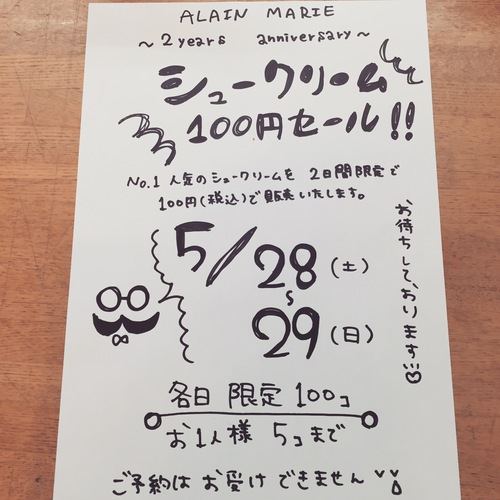 ALAIN MARIE
～2years anniversary～
シュークリーム
100円セール!!
No.1 人気のシュークリームを 2日間限定で
100円(税込)で販売いたします。
5/28(土)
～
29(日)
お待ちしております
各日 限定 100コ
お1人様 5コまで
ご予約は お受け できません